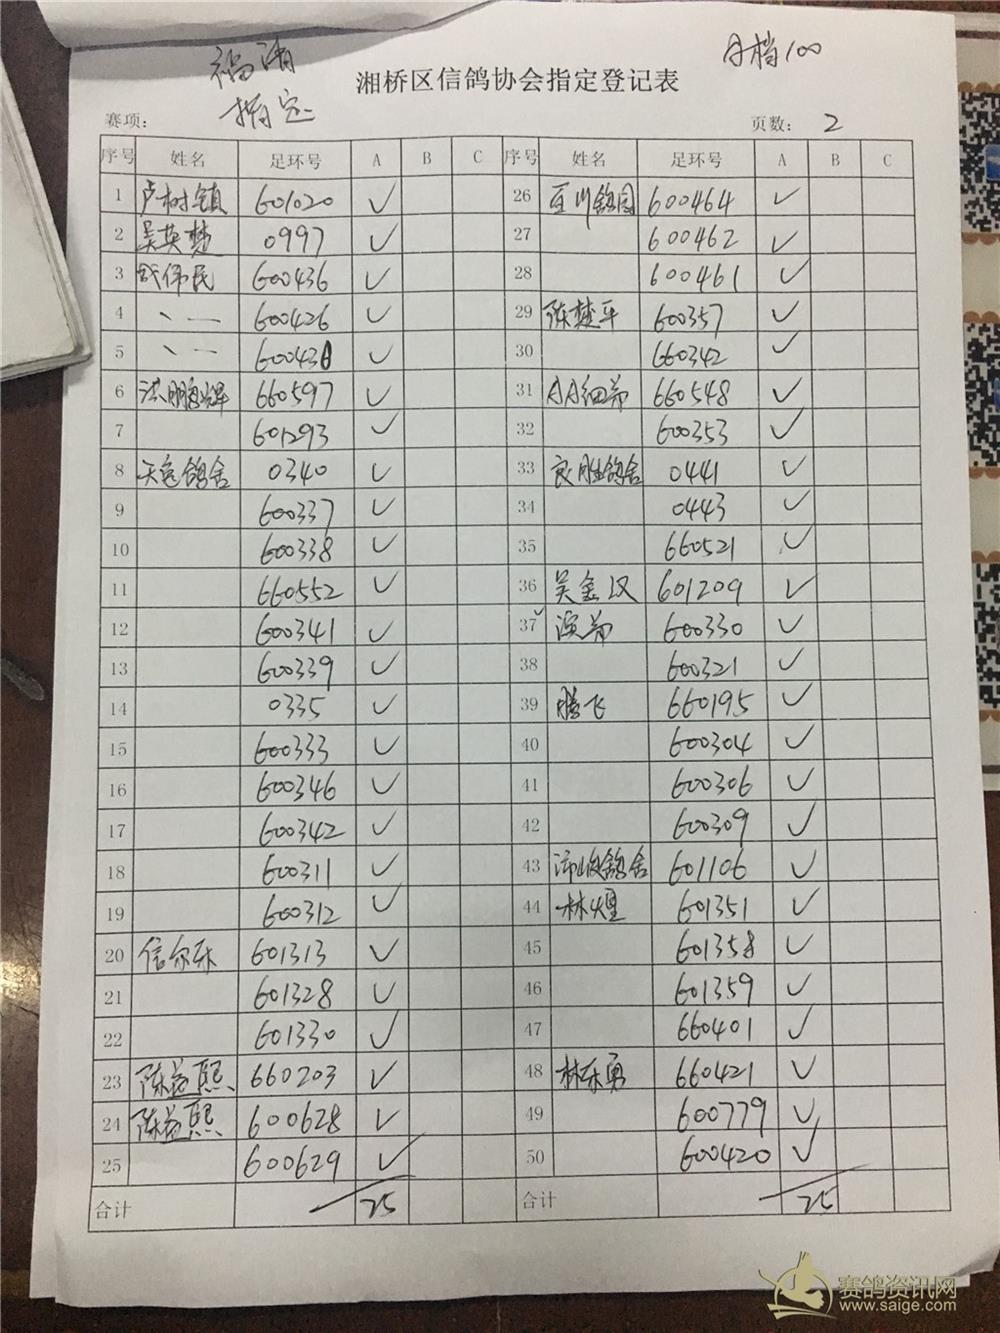 福清
指定
A档100
湘桥区信鸽协会指定登记表
赛项：
页数： 2
序号 姓名 足环号 A B C 序号 姓名 足环号 A B C
1 卢树镇 601020 ✓ 26 亘川鸽园 600464 ✓
2 吴英楚 0997 ✓ 27 600462 ✓
3 伟民 600436 ✓ 28 600461 ✓
4 〃 600426 ✓ 29 陈楚平 600357 ✓
5 〃 600431 ✓ 30 660342 ✓
6 洪鹏辉 660597 ✓ 31 AA细弟 660548 ✓
7 601293 ✓ 32 600353 ✓
8 天逸鸽舍 0340 ✓ 33 良胜鸽舍 0441 ✓
9 600337 ✓ 34 0443 ✓
10 600338 ✓ 35 660521 ✓
11 660552 ✓ 36 吴金汉 601209 ✓
12 600341 ✓ 37 滨弟 600330 ✓
13 600339 ✓ 38 600321 ✓
14 0335 ✓ 39 腾飞 660195 ✓
15 600333 ✓ 40 600304 ✓
16 600346 ✓ 41 600306 ✓
17 600342 ✓ 42 600309 ✓
18 600311 ✓ 43 鸽舍 601106 ✓
19 600312 ✓ 44 林煌 601351 ✓
20 信尔乐 601313 ✓ 45 601358 ✓
21 601328 ✓ 46 601359 ✓
22 601330 ✓ 47 660401 ✓
23 陈益熙 660203 ✓ 48 林乐勇 660421 ✓
24 陈益熙 600628 ✓ 49 600779 ✓
25 600629 ✓ 50 600420 ✓
合计 25 合计 25
赛鸽资讯网
www.saige.com